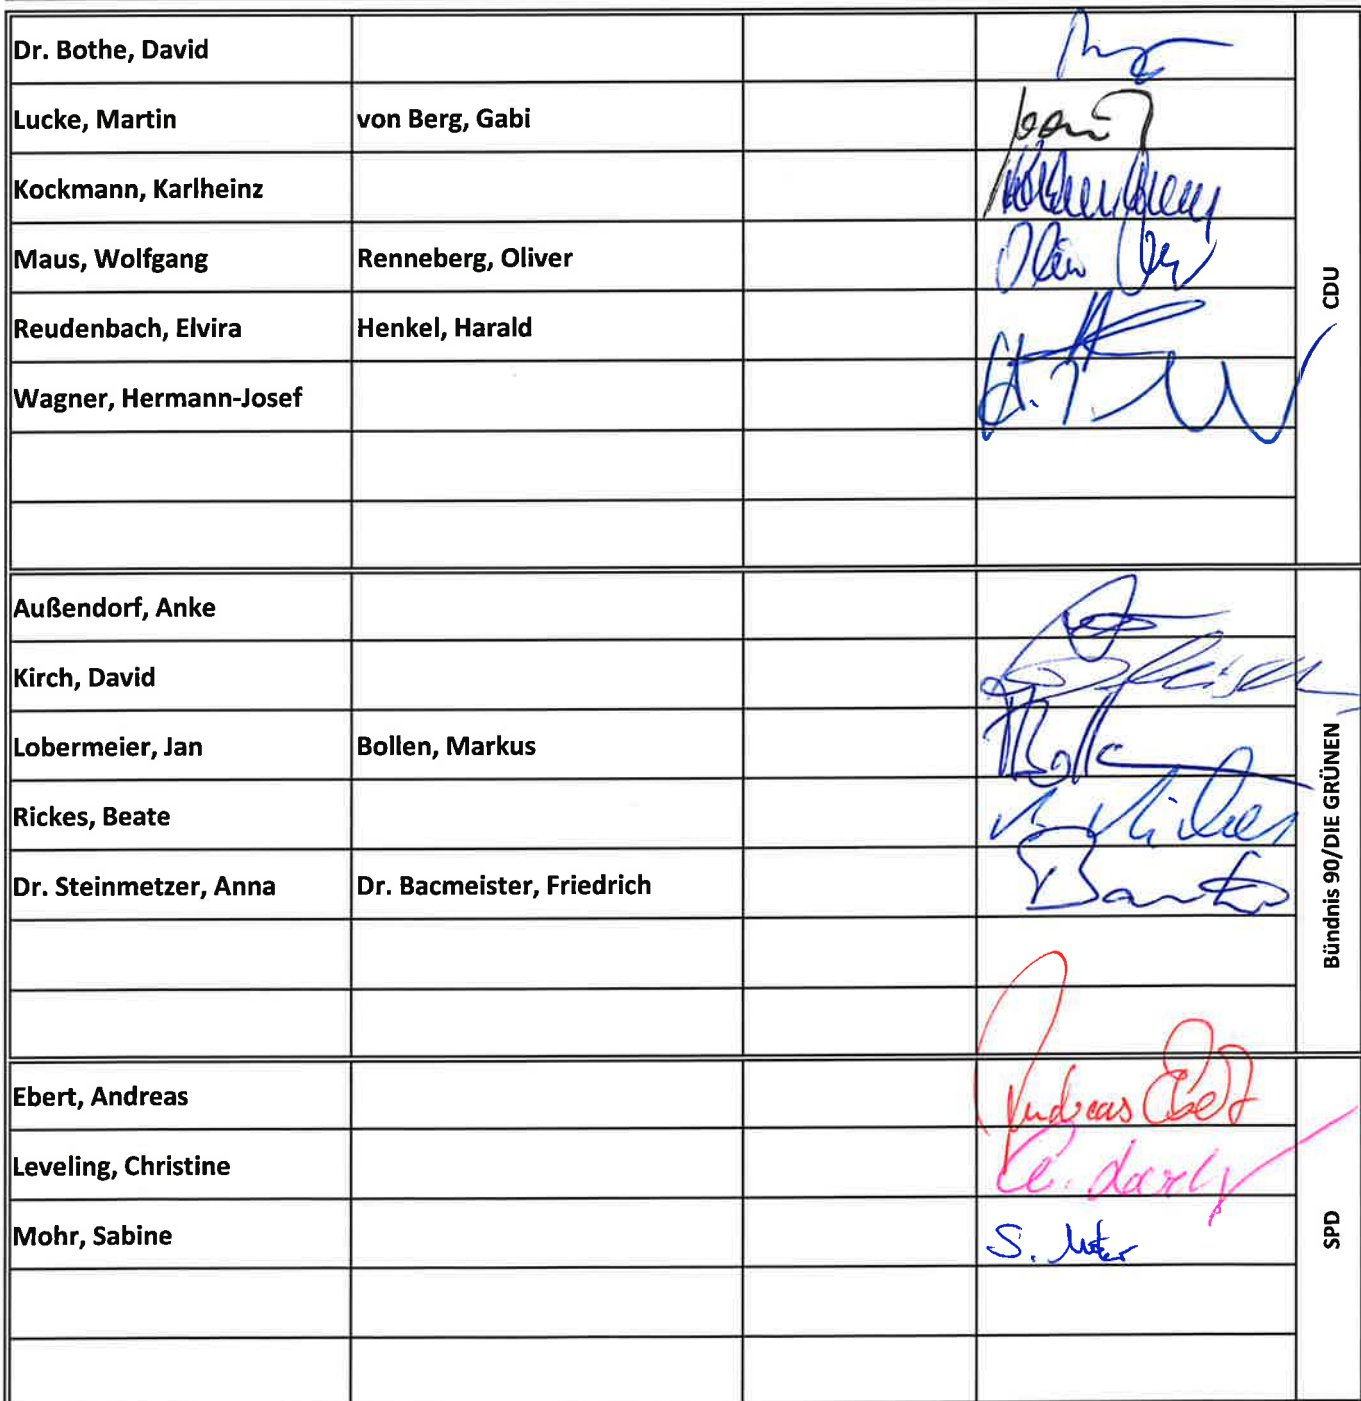 Dr. Bothe, David
Lucke, Martin von Berg, Gabi
Kockmann, Karlheinz
Maus, Wolfgang Renneberg, Oliver
Reudenbach, Elvira Henkel, Harald
Wagner, Hermann-Josef
CDU
Außendorf, Anke
Kirch, David
Lobermeier, Jan Bollen, Markus
Rickes, Beate
Dr. Steinmetzer, Anna Dr. Bacmeister, Friedrich
Bündnis 90/DIE GRÜNEN
Ebert, Andreas Andreas Ebert
Leveling, Christine
Mohr, Sabine S. Mohr
SPD